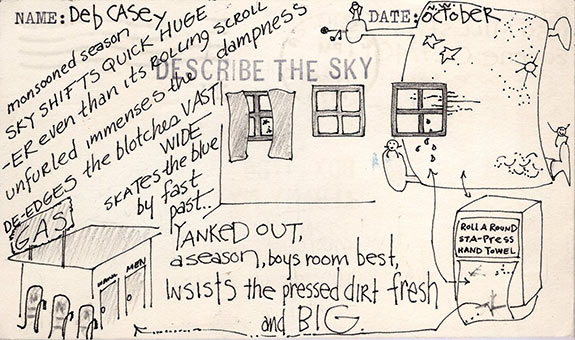 NAME: Deb CASEY
DATE: OCTOBER
DESCRIBE THE SKY
monsooned season
SKY SHIFTS QUICK HUGE
-ER even than its ROLLING SCROLL
unfurled immenses the dampness
DE-EDGES the blotches VAST
WIDE
SKATES the blue
by fast
past..
YANKED OUT,
a season, boys room best,
INSISTS the pressed DIRT fresh
and BIG.
GAS
MEN
ROLL A ROUND
STA-PRESS
HAND TOWEL